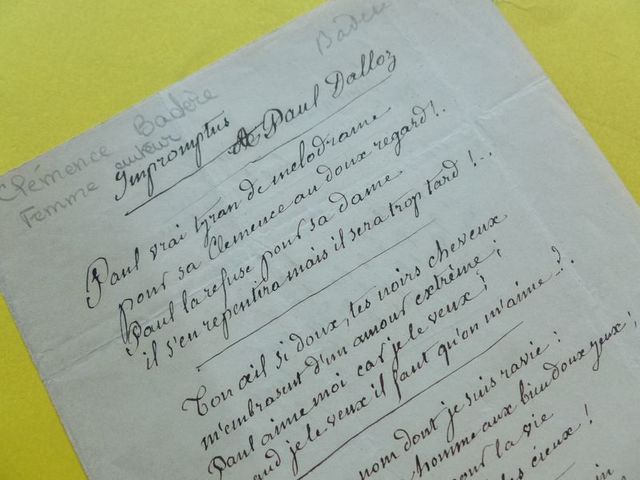 Badère
Clémence Badère
Femme auteur
Impromptus
A Paul Dalloz
Paul vrai tyran de mélodrame
pour sa Clemence au doux regard !..
Paul la refuse pour sa dame
il s'en repentira mais il sera trop tard !...
Ton œil si doux, tes noirs cheveux
m'embrasent d'un amour extrême ;
Paul aime moi car je le veux !
quand je le veux il faut qu'on m'aime ?.
nom dont je suis ravie :
homme aux bien doux yeux !
pour la vie
des cieux !